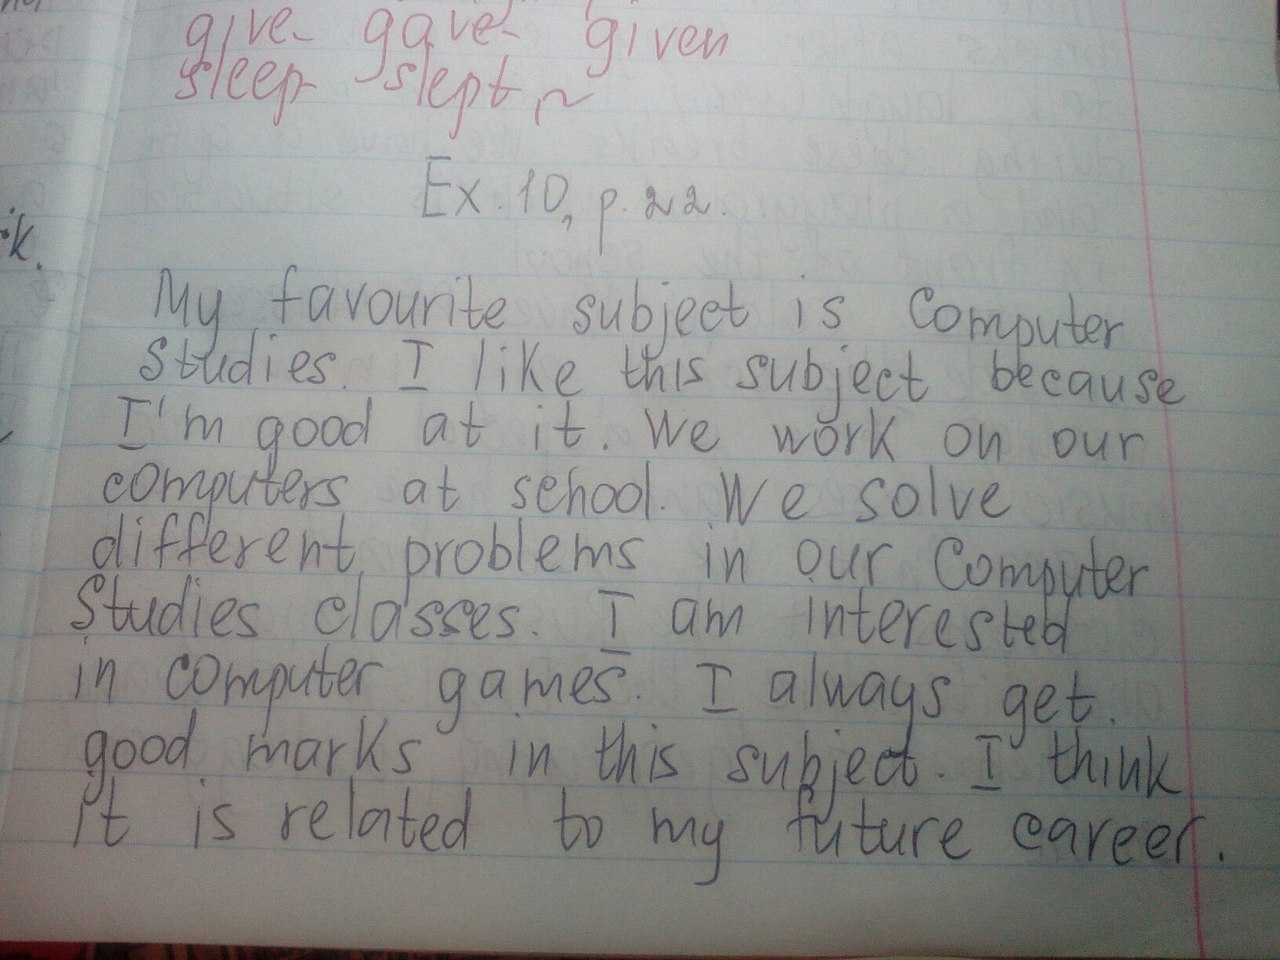 give- gave- given
sleep- slept, ~
Ex. 10, p. 22.
k.
My favourite subject is Computer
Studies. I like this subject because
I'm good at it. We work on our
computers at school. We solve
different problems in our Computer
Studies classes. I am interested
in computer games. I always get
good marks in this subject. I think
it is related to my future career.